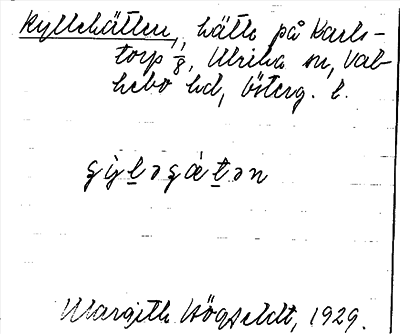 Kyllehättan, hälla på Karls-
torp 1/8, Ulrika sn, Val-
kebo hd, Österg. l.
Margith Högfeldt, 1929.